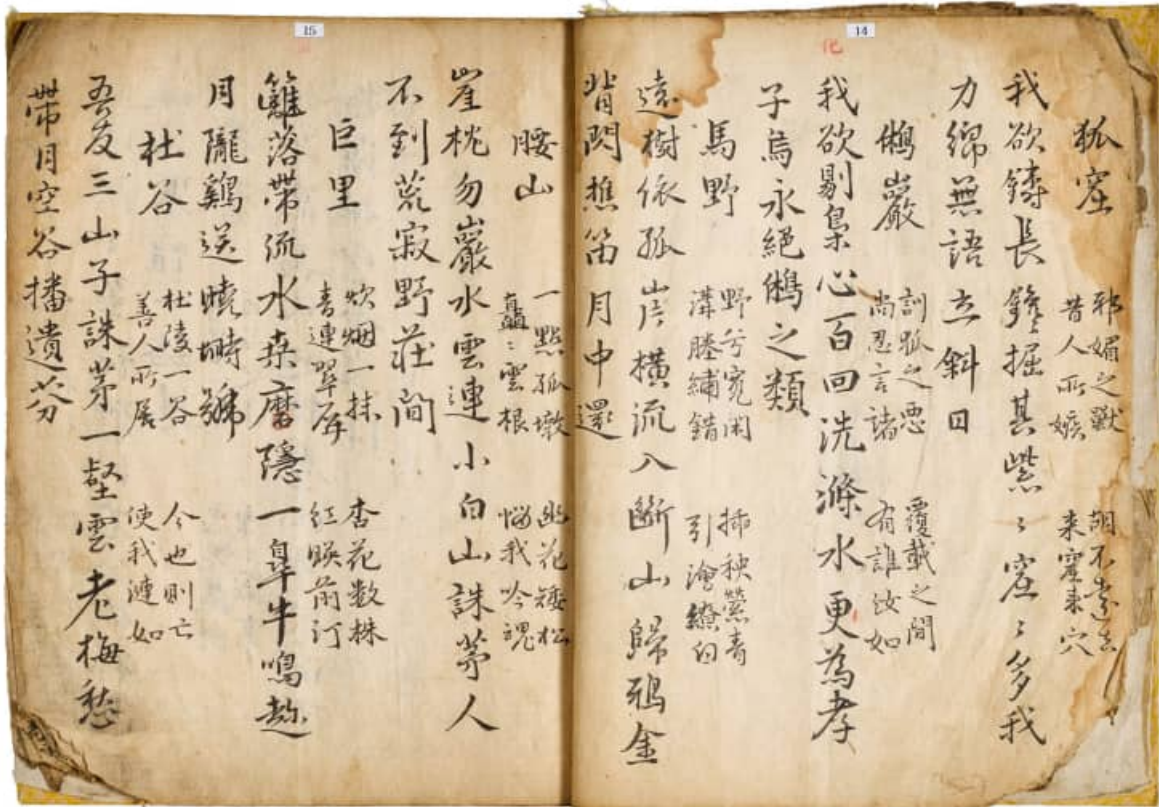 14
狐窟
邪媚之獸
昔人所嫉
胡不遠去
來窟來穴
我欲鑄長鑱掘其紫〻窟〻多我
力綿無語立斜日
鵂巖
訓狐之惡
尚忍言諸
覆載之間
有誰汝如
我欲剔梟心百回洗滌水更為孝
子烏永絕鵂之類
馬野
野兮寬閑
溝塍繡錯
挿秧縈青
引澮繚白
遠樹依孤岸橫流入斷山歸鴉金
背閃樵笛月中還
15
腰山
一點孤墩
矗〻雲根
幽花矮松
惱我吟魂
崖枕勿巖水雲連小白山誅茅人
不到荒寂野莊間
巨里
炊烟一抹
靑連翠屛
杏花数株
紅暎前汀
籬落帶流水桑麿隱一皐牛鳴趂
月隴鷄送曉塒號
杜谷
杜陵一谷
善人所居
今也則亡
使我漣如
吾友三山子誅茅一壑雲老梅愁
帶月空谷播遺芬